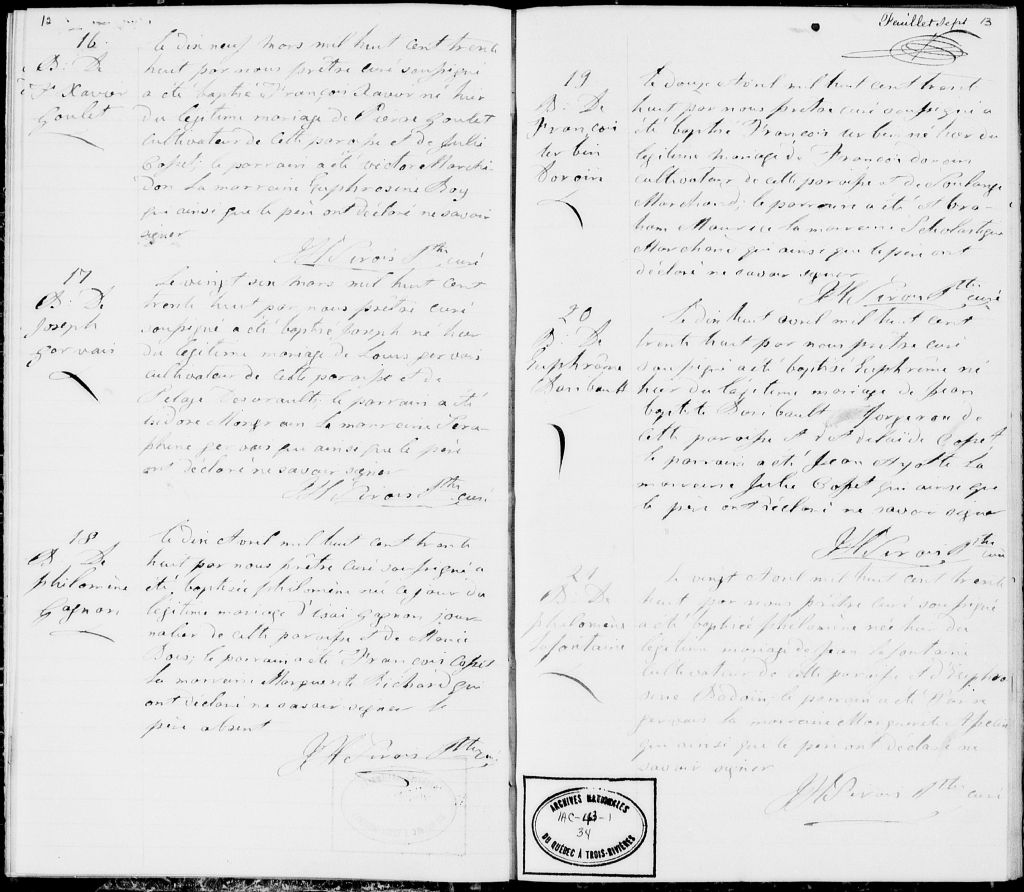 12
16
B. De
F. Xavier
Goulet
Le dix neuf mars mil huit cent trente
huit par nous prêtre curé soussigné
a été baptisé François Xavier né hier
du légitime mariage de Pierre Goulet
cultivateur de cette paroisse et de Julie
Copet; le parrain a été victor Marchi-
Don La marraine Euphrosine Roy
qui ainsi que le père ont déclaré ne savoir
signer
Ptre curé
17
B. De
Joseph
Gervais
Le vingt six mars mil huit cent
trente huit par nous prêtre curé
soussigné a été baptisé Joseph né hier
du légitime mariage de Louis gervais
cultivateur de cette paroisse et de
le parrain a été
Isidore Mongrain La marraine Sera-
phine gervais qui ainsi que le père
ont déclaré ne savoir signer
Ptre curé
18
B. De
philomène
Gagnon
Le dix Avril mil huit cent trente
huit par nous prêtre curé soussigné a
été baptisée philomène née ce jour du
légitime mariage d'Esaï Gagnon jour-
nalier de cette paroisse et de Marie
Bois; le parrain a été François Copet
La marraine Marguerite Richard qui
ont déclaré ne savoir signer le
père absent
Ptre curé
Feuillet Sept 13
19
B. De
François
urbin
Le douze Avril mil huit cent trente
huit par nous prêtre curé soussigné a
été baptisé François urbin né hier du
légitime mariage de François
cultivateur de cette paroisse et de Solange
Marchand; le parrain a été Abra-
ham Maurice La marraine Scholastique
Marchand qui ainsi que le père ont
déclaré ne savoir signer
Ptre curé
20
B. De
Euphrème
Baribault
Le dix huit avril mil huit cent
trente huit par nous prêtre curé
soussigné a été baptisé Euphrème né
hier du légitime mariage de Jean
baptiste Baribault forgeron de
cette paroisse et de Adelaïde Copet
le parrain a été Jean Ayotte La
marraine Julie Copet qui ainsi que
le père ont déclaré ne savoir signer
Ptre curé
21
B. De
philomène
Lafontaine
Le vingt Avril mil huit cent trente
huit par nous prêtre curé soussigné
a été baptisée philomène née hier du
légitime mariage de Jean Lafontaine
cultivateur de cette paroisse et d'Euphro-
sine le parrain a été
gervais La marraine Marguerite
qui ainsi que le père ont déclaré ne
savoir signer
Ptre curé
ARCHIVES NATIONALES
1AC-43-1
34
DU QUÉBEC À TROIS-RIVIÈRES